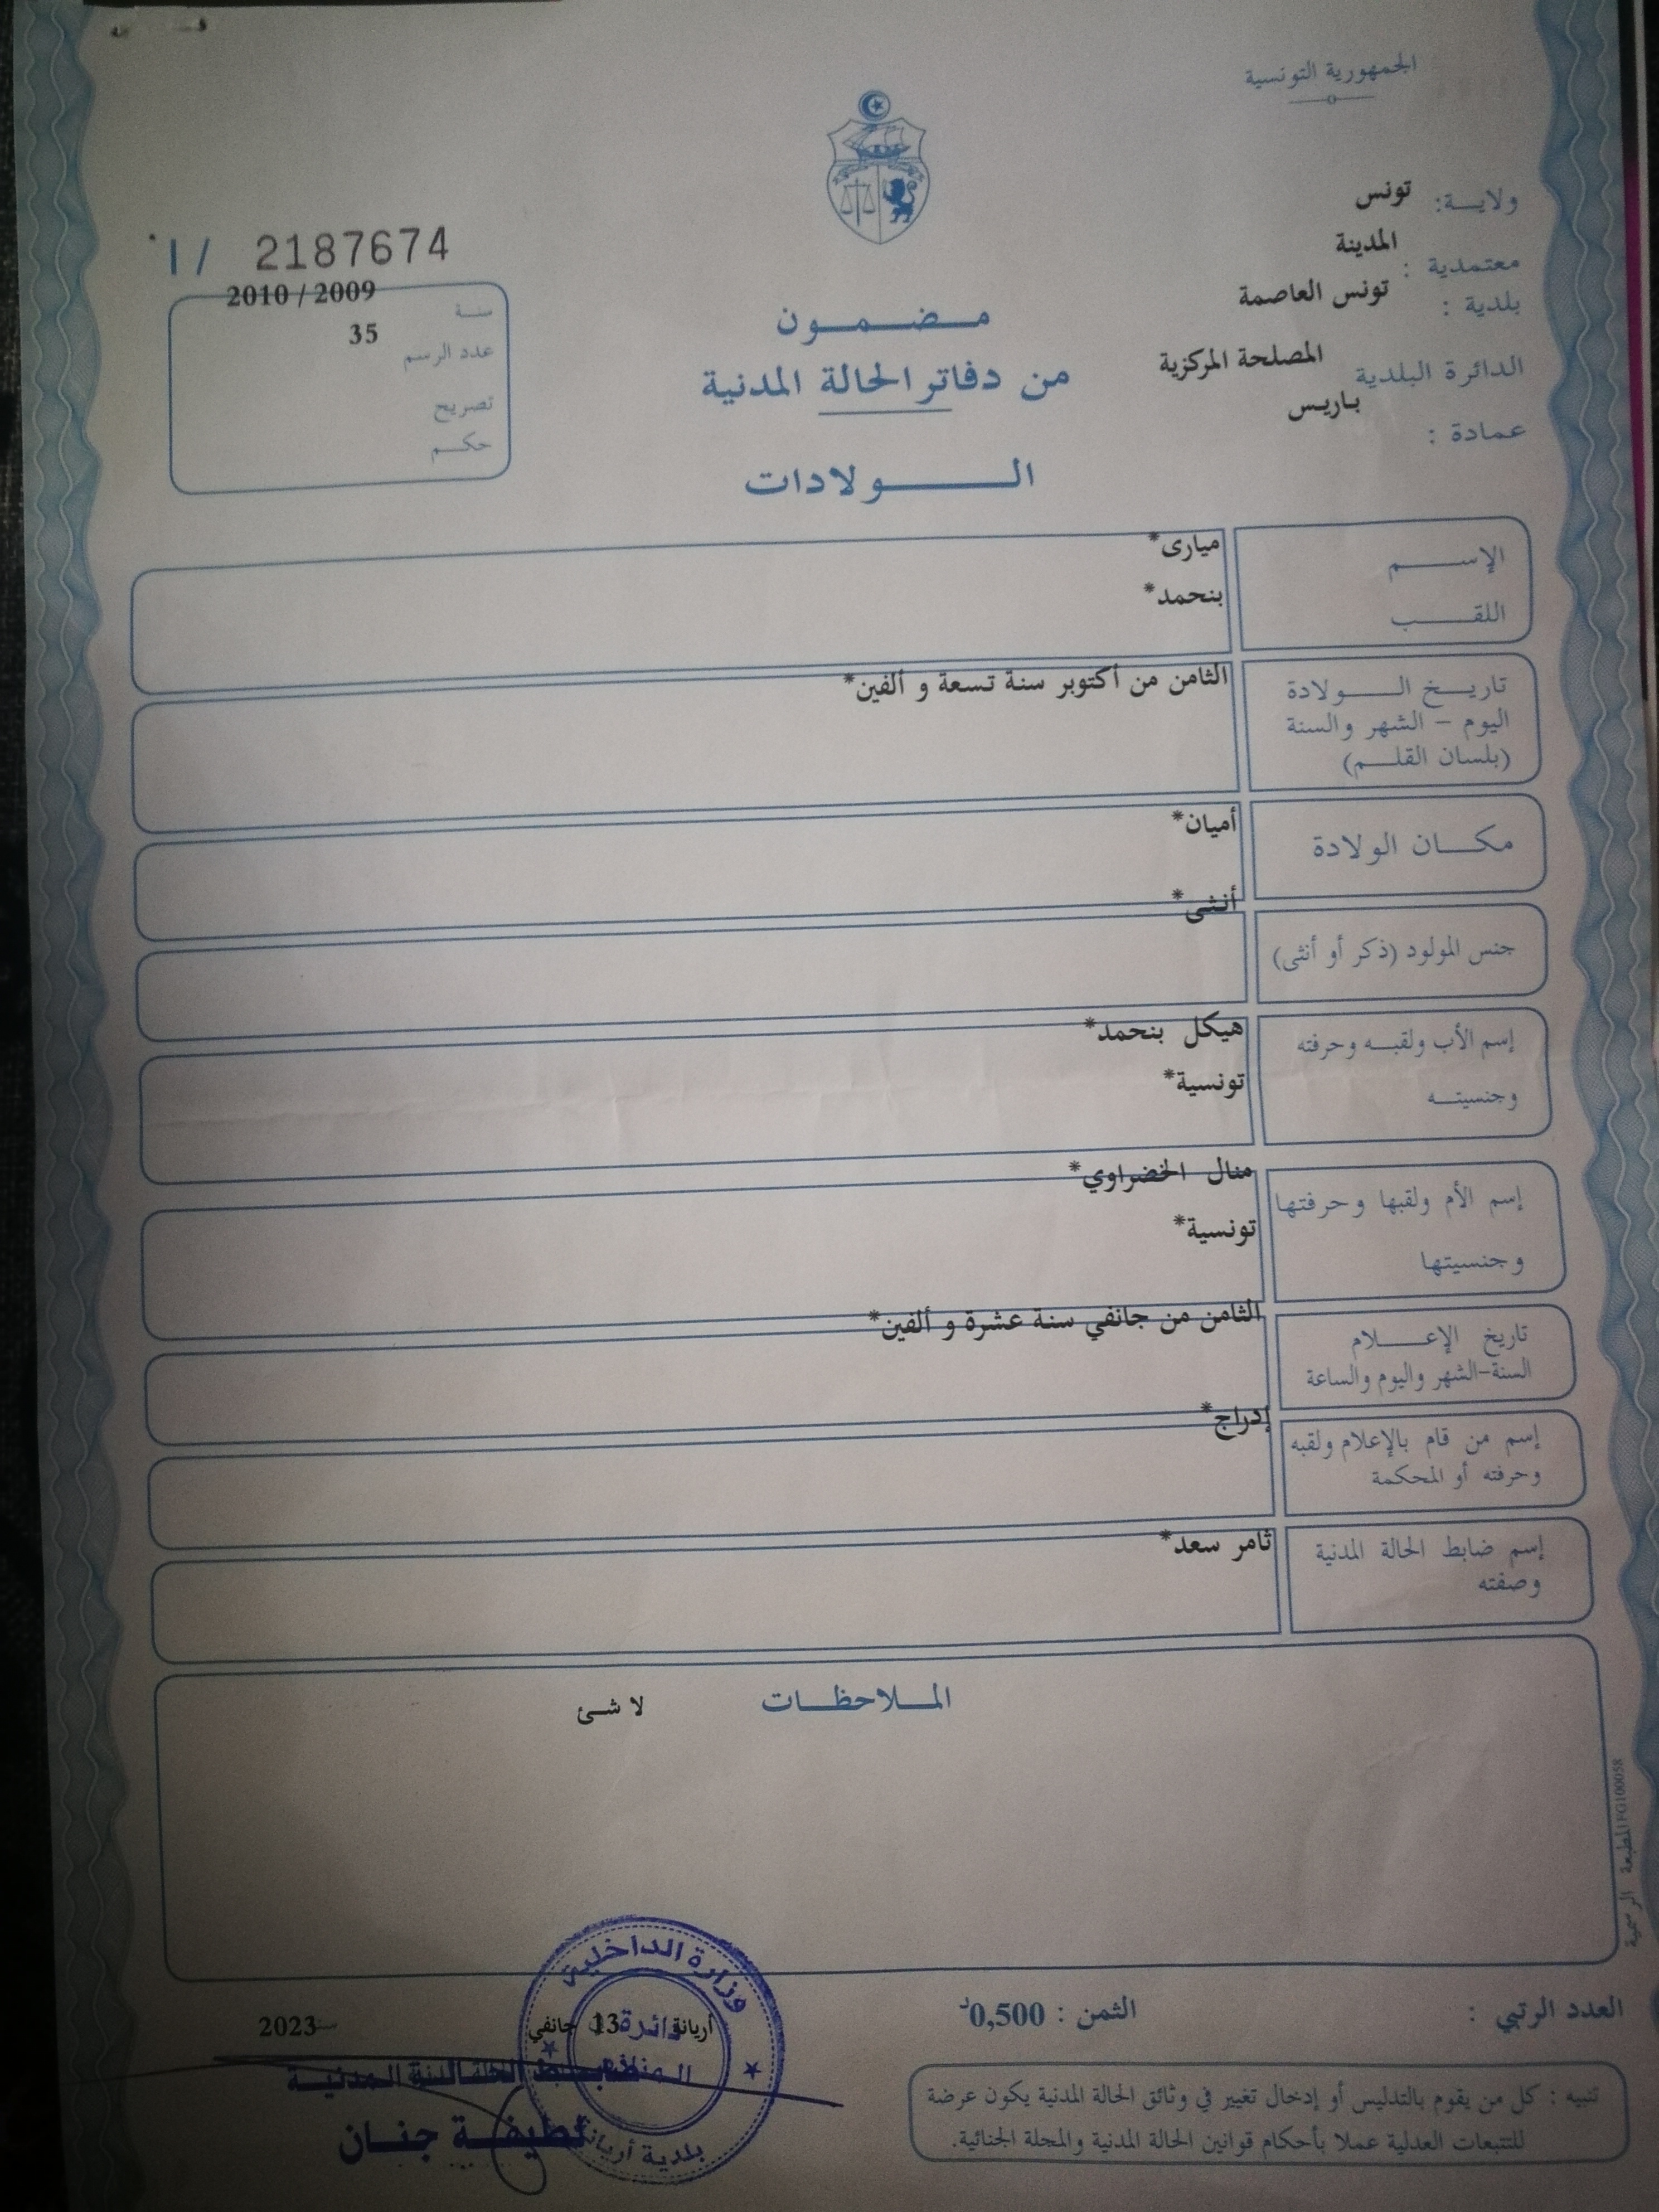 الجمهورية التونسية
ولايـــة: تونس
معتمدية : المدينة
بلدية : تونس العاصمة
الدائرة البلدية المصلحة المركزية
عمادة : باريس
I / 2187674
سنة 2010 / 2009
عدد الرسم 35
تصريح
حكـم
مـضـمـون
من دفاتر الحالة المدنية
الـولادات
الإســـم ميارى*
اللقـــب بنحمد*
تاريـخ الــولادة الثامن من أكتوبر سنة تسعة و ألفين*
اليوم - الشهر والسنة
(بلسان القلـم)
مكـان الولادة أميان*
جنس المولود (ذكر أو أنثى) أنثى*
إسم الأب ولقبـه وحرفته هيكل بنحمد*
وجنسيتـه تونسية*
إسم الأم ولقبها وحرفتها منال الخضراوي*
وجنسيتها تونسية*
تاريخ الإعـــلام الثامن من جانفي سنة عشرة و ألفين*
السنة-الشهر واليوم والساعة
إسم من قام بالإعلام ولقبه إدراج*
وحرفته أو المحكمة
إسم ضابط الحالة المدنية ثامر سعد*
وصفته
الملاحظات لا شئ
المطبعة الرسمية FG100058
العدد الرتبي :
الثمن : 0,500د
أريانة 13 جانفي سنة 2023
وزارة الداخلية
دائرة
بلدية أريانة
لطيفـة جنـان
تنبيه : كل من يقوم بالتدليس أو إدخال تغيير في وثائق الحالة المدنية يكون عرضة
للتتبعات العدلية عملا بأحكام قوانين الحالة المدنية والمجلة الجنائية.